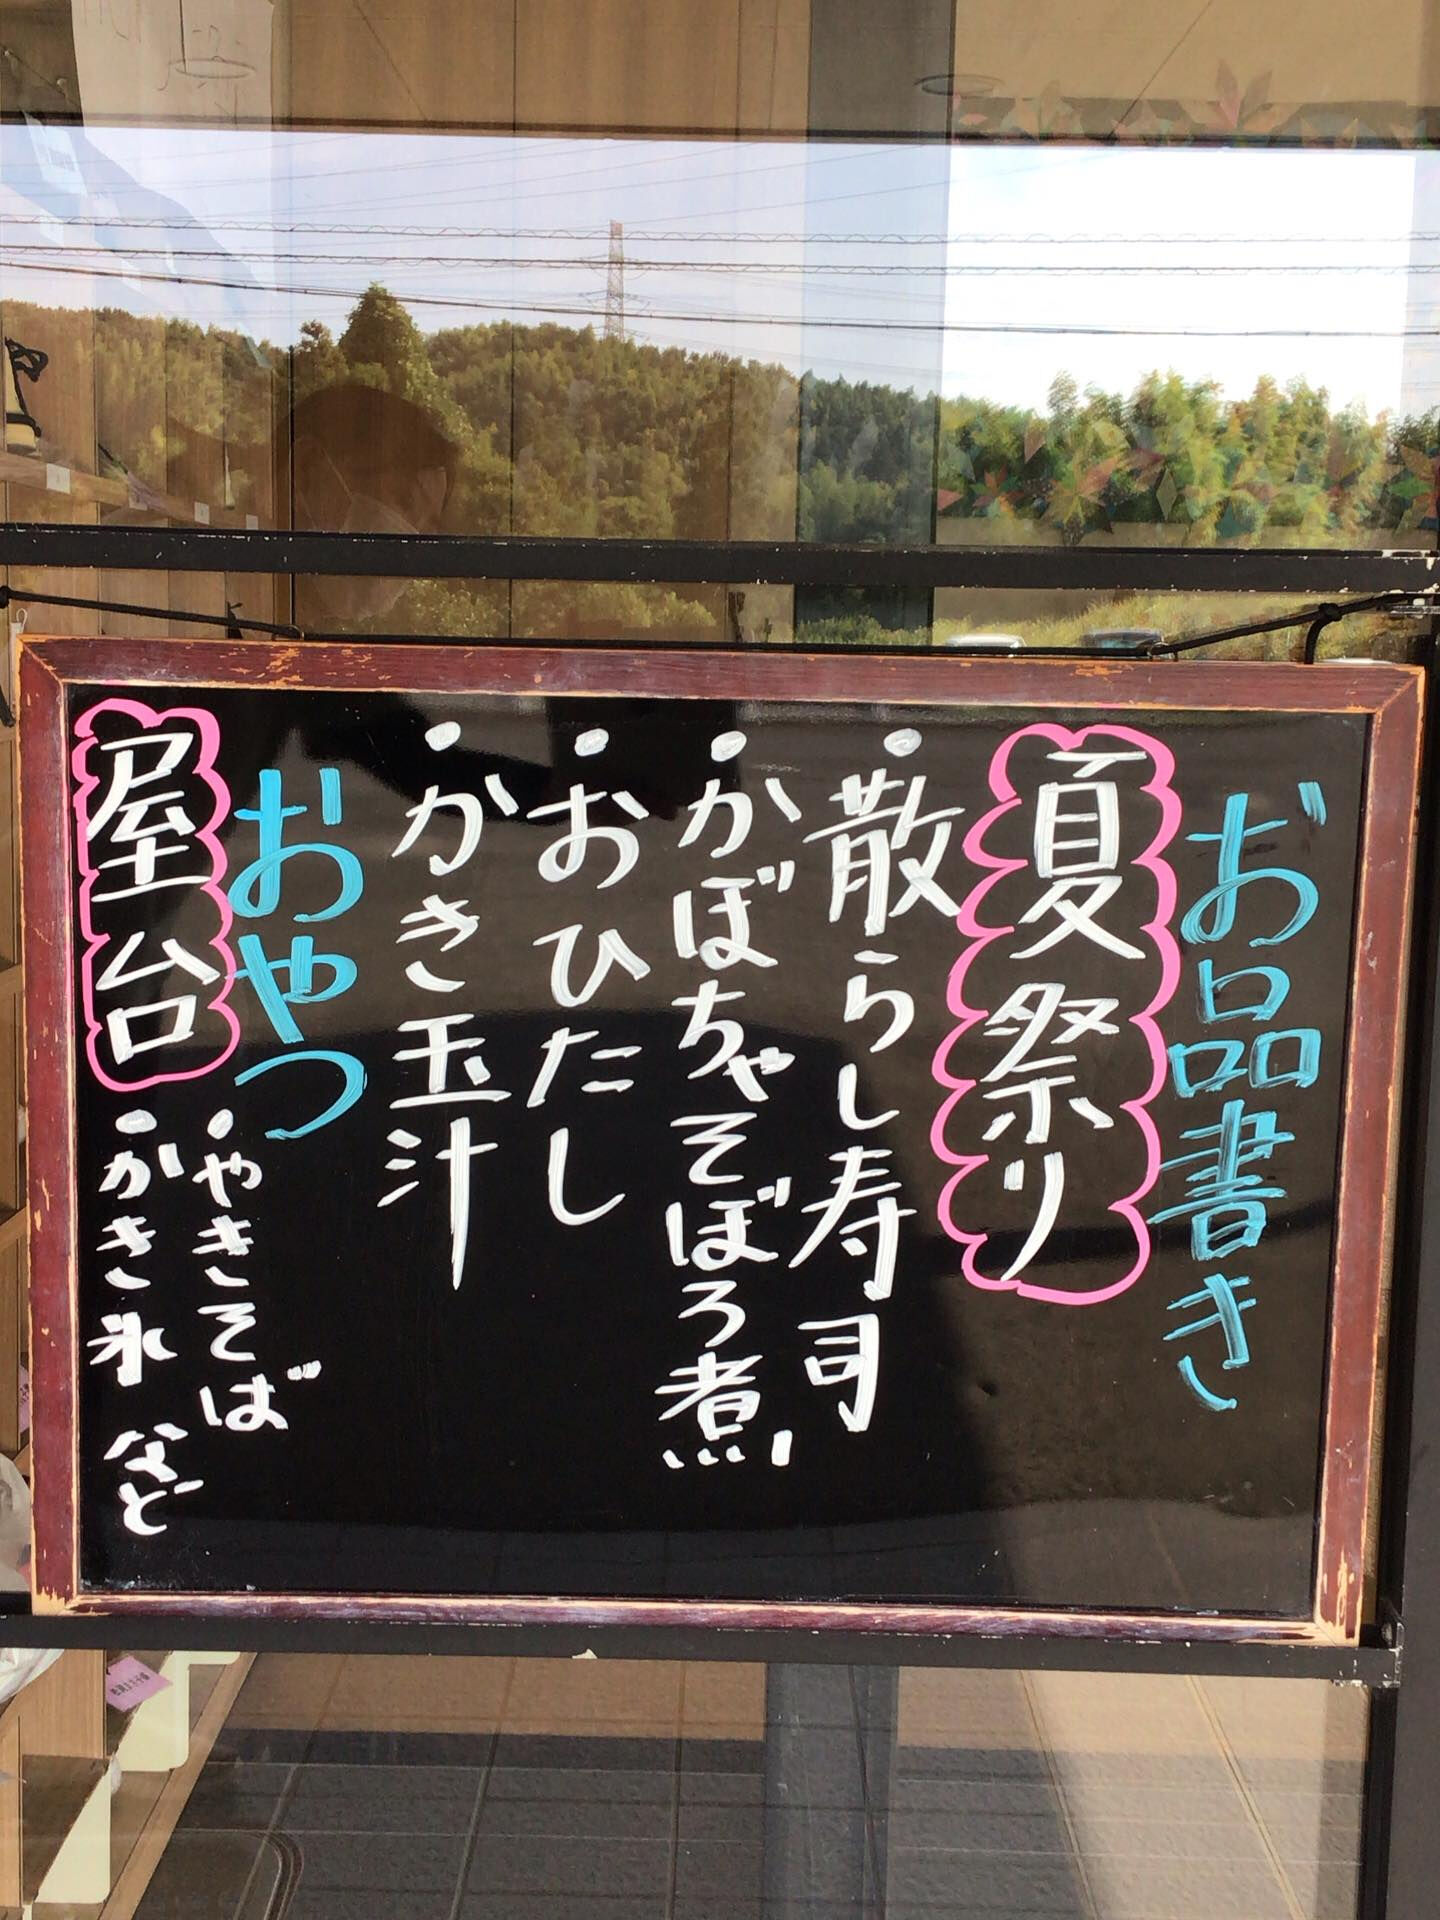 お品書き
夏祭り
・散らし寿司
・かぼちゃそぼろ煮
・おひたし
・かき玉汁
おやつ
・やきそば
屋台
・かき氷 など